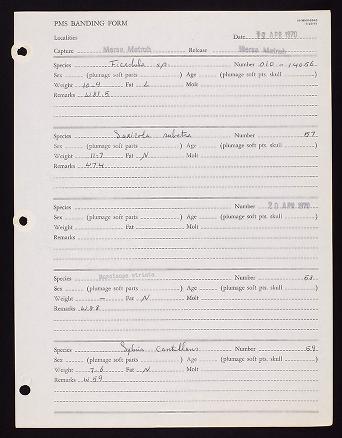 PMS BANDING FORM
Localities Date 19 APR 1970
Capture Mersa Matruh Release Mersa Matruh
Species Ficedula sp. Number 010 - 14056
Sex (plumage soft parts ) Age (plumage soft pts. skull )
Weight 10.9 Fat L Molt
Remarks W 81.5
Species Saxicola rubetra Number 57
Sex (plumage soft parts ) Age (plumage soft pts. skull )
Weight 11.7 Fat N Molt
Remarks W 74
Species Number 20 APR 1970
Sex (plumage soft parts ) Age (plumage soft pts. skull )
Weight Fat Molt
Remarks
Species striata Number 58
Sex (plumage soft parts ) Age (plumage soft pts. skull )
Weight — Fat N Molt
Remarks W 88
Species Sylvia cantillans Number 59
Sex (plumage soft parts ) Age (plumage soft pts. skull )
Weight 7.6 Fat N Molt
Remarks W 59